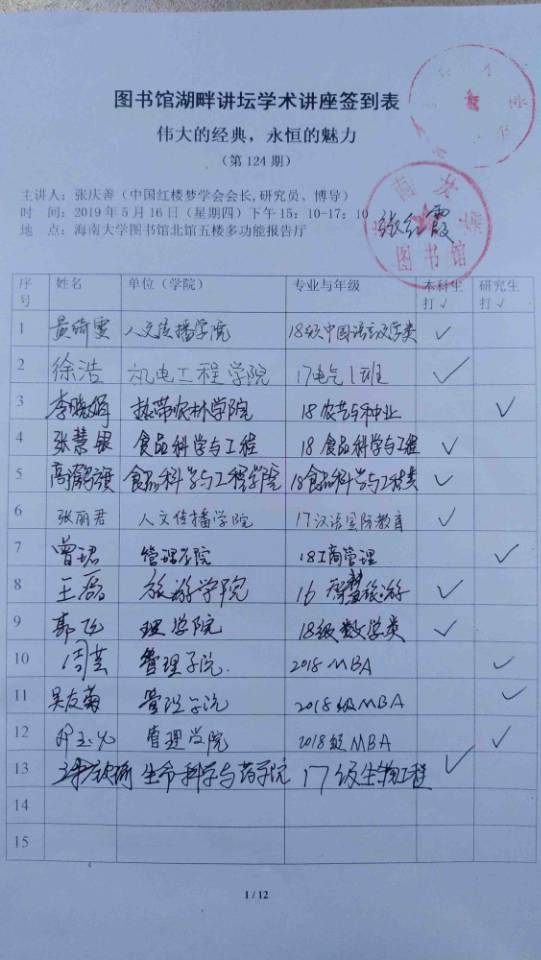 图书馆湖畔讲坛学术讲座签到表
伟大的经典，永恒的魅力
（第 124 期）
主讲人：张庆善（中国红楼梦学会会长, 研究员、博导）
时　间：2019 年 5 月 16 日（星期四）下午 15：10-17：10
地　点：海南大学图书馆北馆五楼多功能报告厅
张红霞
图书馆
序号 姓名 单位（学院） 专业与年级 本科生打√ 研究生打√
1 黄绮雯 人文传播学院 18级中国语言文学类 √
2 徐浩 机电工程学院 17电气1班 √
3 李晓娟 热带农林学院 18农艺与种业 √
4 张慧银 食品科学与工程 18食品科学与工程 √
5 食品科学与工程学院 18食品科学与工程类 √
6 张丽君 人文传播学院 17汉语国际教育 √
7 曾珺 管理学院 18工商管理 √
8 王磊 旅游学院 16 旅游 √
9 郭飞 理学院 18级数学类 √
10 周芸 管理学院. 2018 MBA √
11 吴友菊 管理学院 2018级MBA √
12 管理学院 2018级MBA √
13 生命科学与药学院 17级生物工程 √
14
15
1 / 12